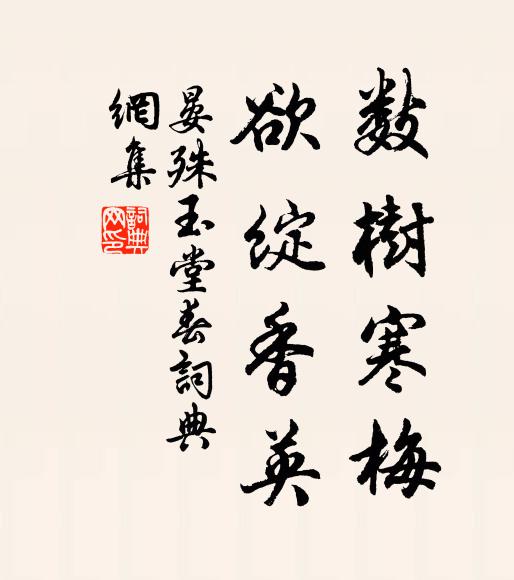 数樹寒梅
欲綻香英
晏殊玉堂春詞典
網集
詞典
网印